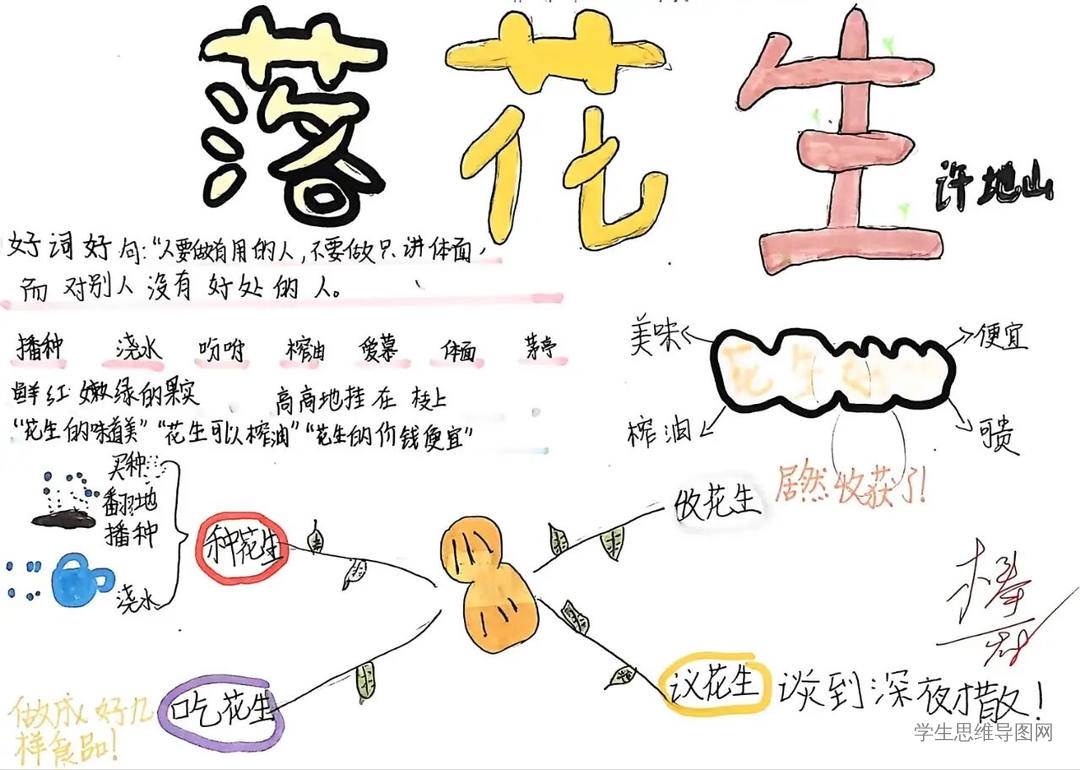 落花生
许地山
好词好句：“人要做有用的人，不要做只讲体面，
而对别人没有好处的人。
播种 浇水 吩咐 榨油 爱慕 体面 茅亭
鲜红嫩绿的果实 高高地挂在枝上
“花生的味道美”“花生可以榨油”“花生的价钱便宜”
美味
便宜
榨油
可贵
买种
翻地
播种
浇水
种花生
收花生
居然收获了！
吃花生
做成好几
样食品！
议花生
谈到深夜才散！
棒
学生思维导图网